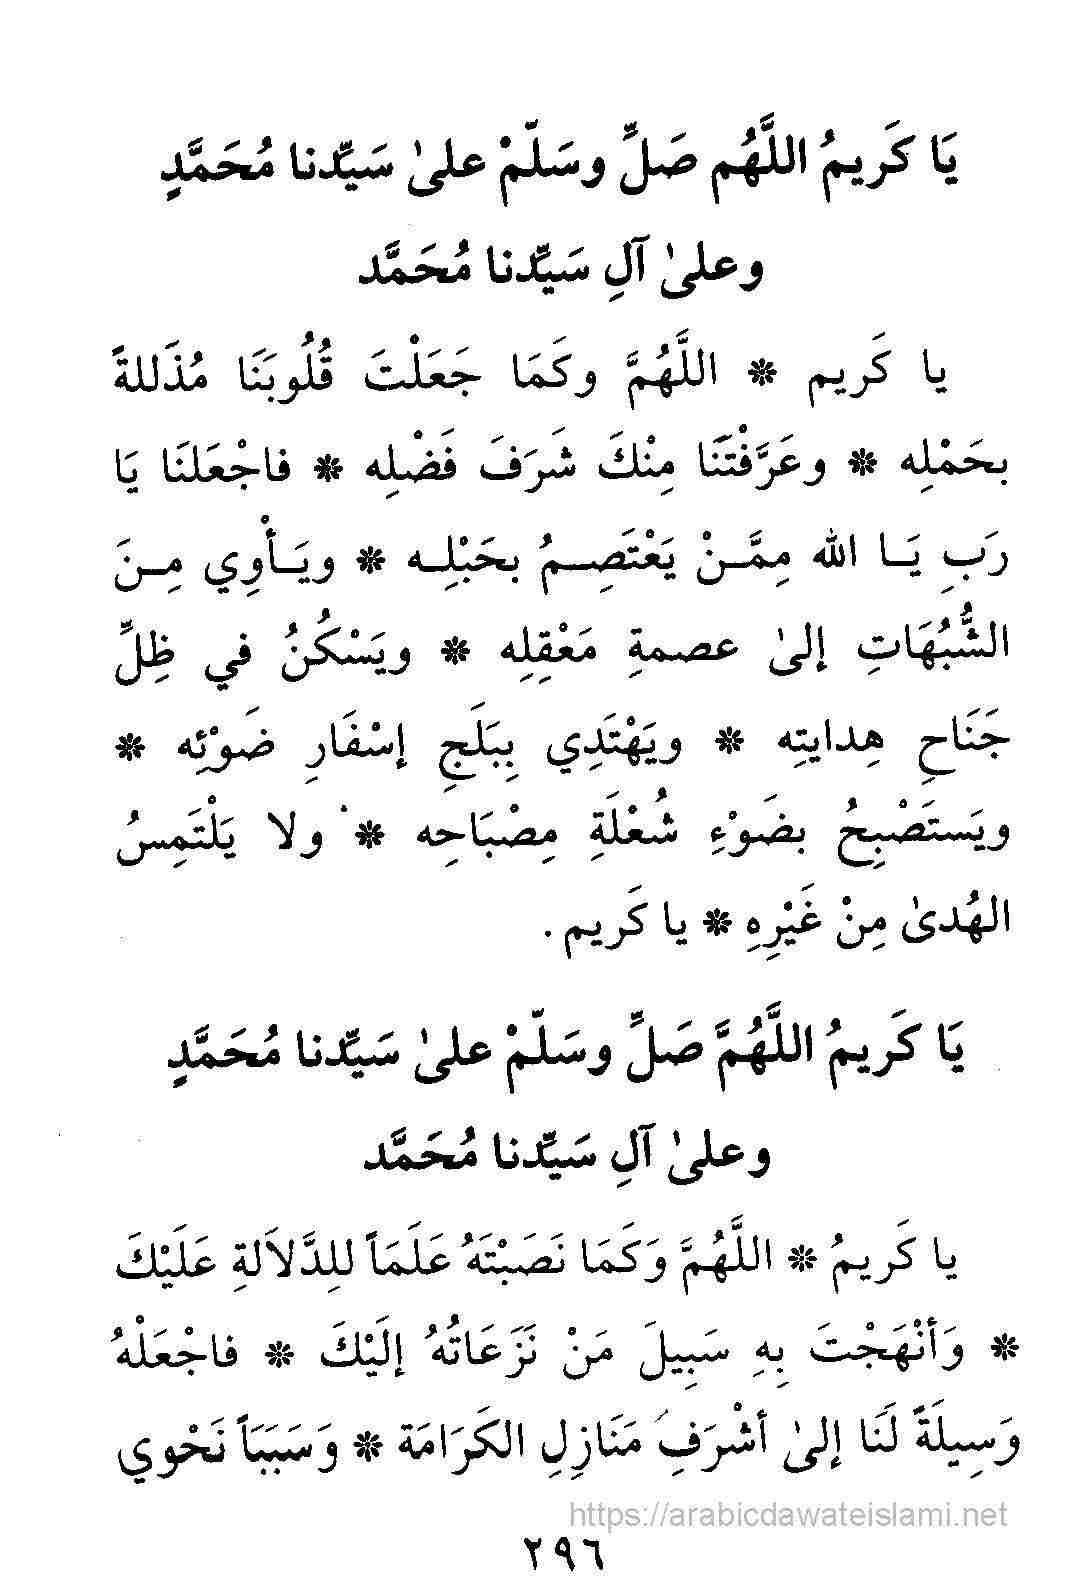 يَا كَريمُ اللَّهُم صَلِّ وسَلّمْ علىٰ سَيِّدنا مُحَمَّدٍ
وعلىٰ آلِ سَيِّدنا مُحَمَّد
يا كَريم ❊ اللَّهُمَّ وكَمَا جَعَلْتَ قُلُوبَنَا مُذَللةً
بحَمْلِه ❊ وعَرَّفْتَنَا مِنْكَ شَرَفَ فَضْلِه ❊ فاجْعَلنَا يَا
رَبِ يَـا الله مِمَّـنْ يَعْتَصِـمُ بحَبْلِـه ❊ ويَـأْوِي مِـنَ
الشُّبُهَاتِ إلىٰ عصمةِ مَعْقِلِه ❊ ويَسْكُنُ في ظِلِّ
جَنَاحِ هِدايتِه ❊ ويَهْتَدِي بِبَلَجِ إسْفَارِ ضَوْئِه ❊
ويَستَصْبِحُ بضَوْءِ شُعْلَةِ مِصْبَاحِه ❊ ولا يَلْتَمِسُ
الهُدىٰ مِنْ غَيْرِهِ ❊ يا كَريم .
يَا كَريمُ اللَّهُمَّ صَلِّ وسَلّمْ علىٰ سَيِّدنا مُحَمَّدٍ
وعلىٰ آلِ سَيِّدنا مُحَمَّد
يا كَريمُ ❊ اللَّهُمَّ وَكَمَا نَصَبْتَهُ عَلَمَاً للِدَّلاَلةِ عَلَيْكَ
❊ وَأنْهَجْتَ بِهِ سَبِيلَ مَنْ نَزَعَاتُهُ إلَيْكَ ❊ فاجْعَلْهُ
وَسِيلَةً لَنَا إلىٰ أشْرَفِ مَنَازِلِ الكَرَامَة ❊ وَسَبَبَاً نَحْوي
https://arabicdawateislami.net
٢٩٦